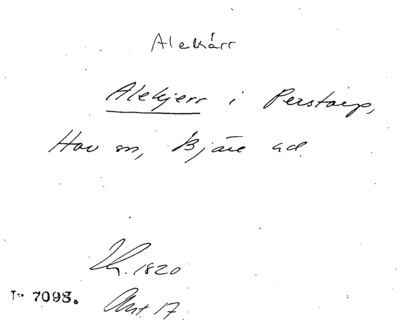 Alekärr
Alekjerr i Perstorp,
Hov sn, Bjäre hd.
1820
7098.
Ant. 17